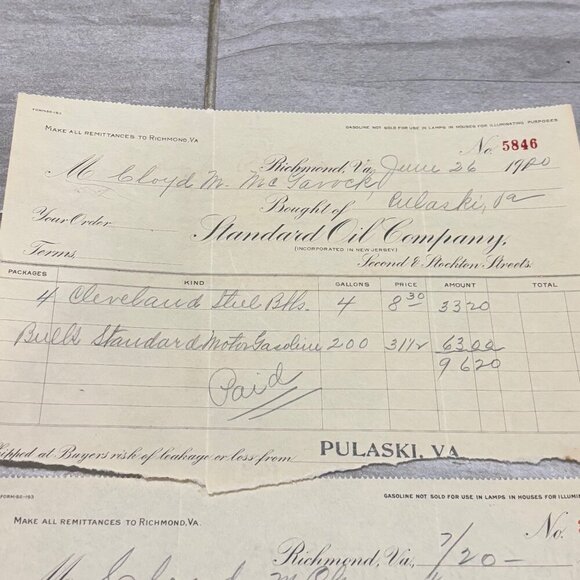 FORM-BE-193
MAKE ALL REMITTANCES TO RICHMOND, VA. GASOLINE NOT SOLD FOR USE IN LAMPS IN HOUSES FOR ILLUMINATING PURPOSES
No. 5846
Richmond, Va. June 26 1920
M Cloyd M. McGavock
Bought of Pulaski, Va
Your Order
Standard Oil Company,
(INCORPORATED IN NEW JERSEY)
Terms Second & Stockton Streets.
PACKAGES KIND GALLONS PRICE AMOUNT TOTAL
4 Cleveland Steel Bbls. 4 8 30 33 20
Bulk Standard Motor Gasoline 200 31 1/2 63 00
96 20
Paid
Shipped at Buyers risk of leakage or loss from PULASKI, VA.
FORM-BE-193 GASOLINE NOT SOLD FOR USE IN LAMPS IN HOUSES FOR
MAKE ALL REMITTANCES TO RICHMOND, VA.
No.
Richmond, Va., 7/20-
M